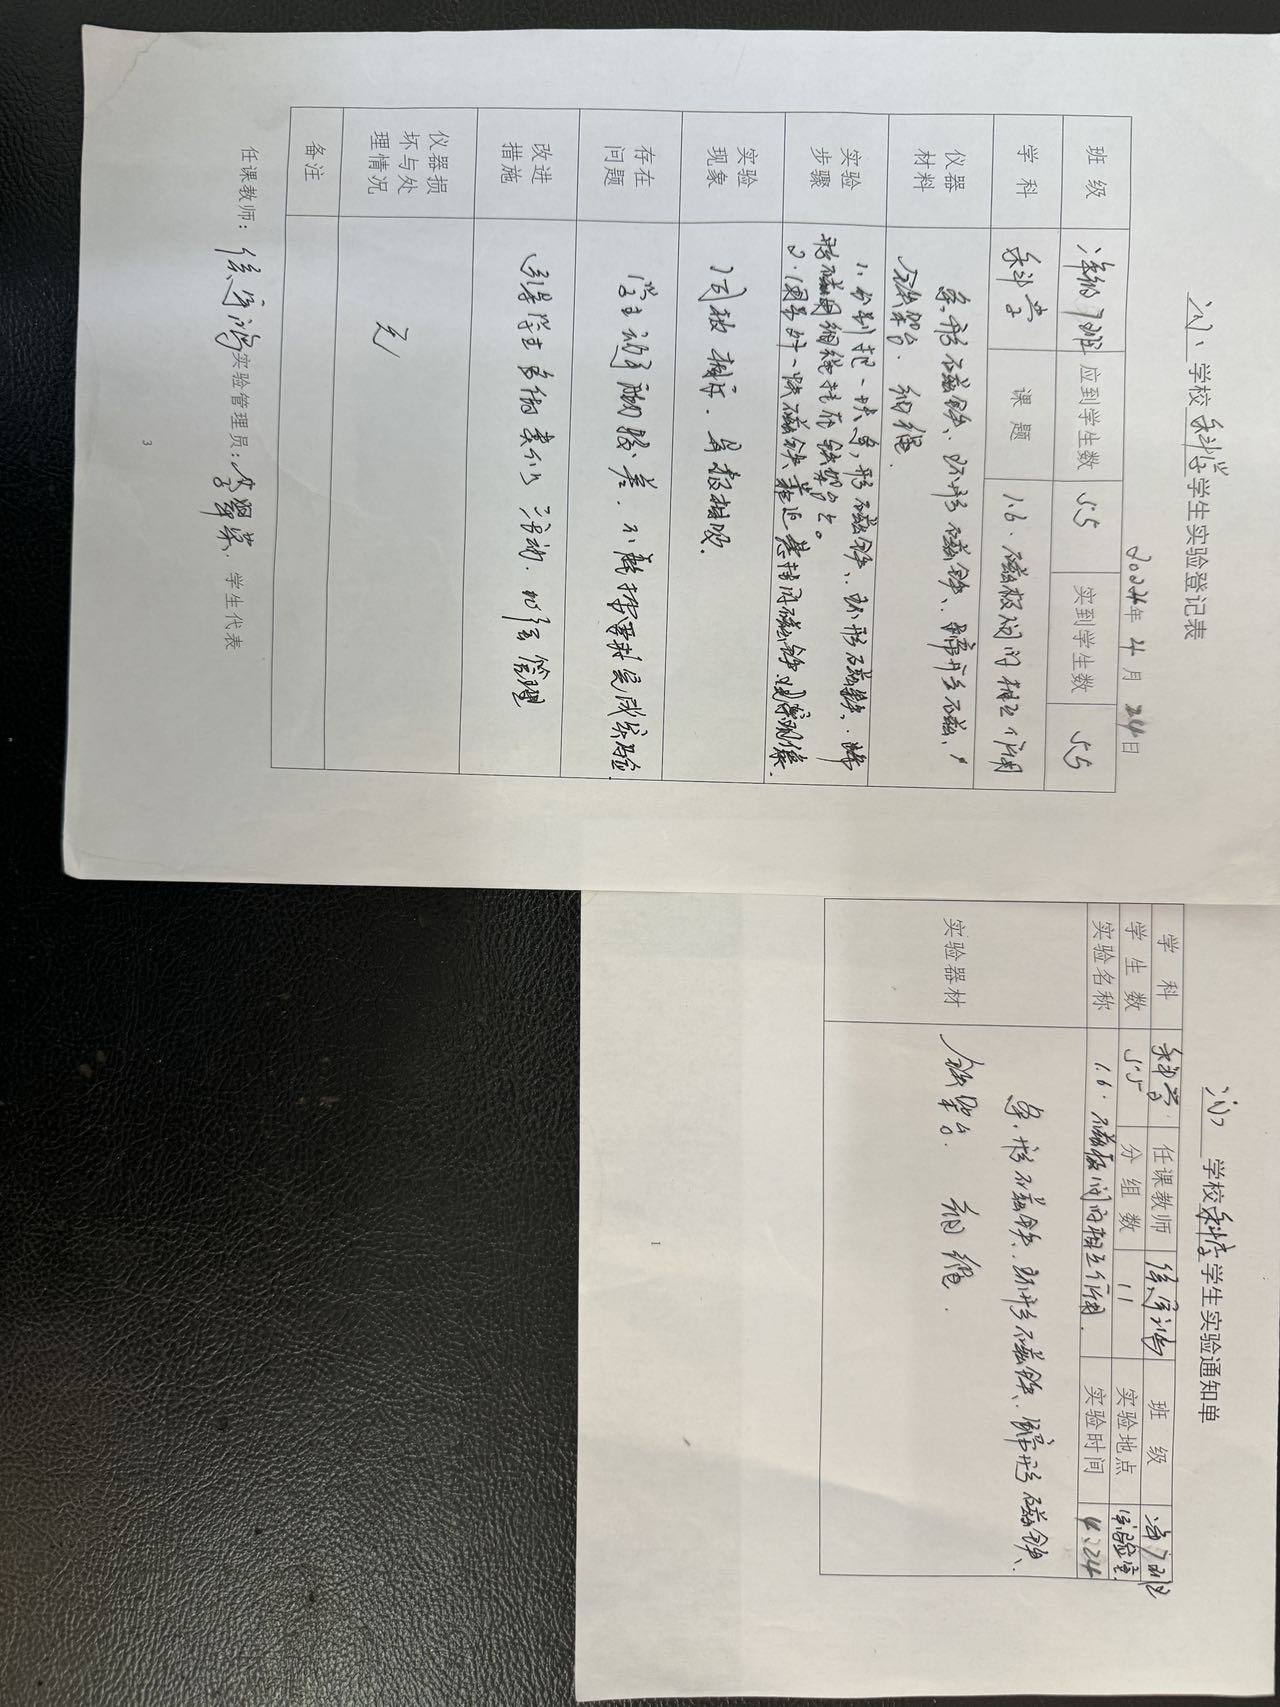 学校 科学 学生实验登记表
2024年 4月 24日
班级 班 应到学生数 55 实到学生数 55
学科 科学 课题 1.6.磁极间的相互作用
仪器材料 条形磁铁、环形磁铁、蹄形磁
铁架台、细绳.
实验步骤 1.分别把一块条形磁铁、环形磁铁、蹄
形磁用细绳挂在铁架台上。
2.用另外一块磁铁靠近悬挂的磁铁
实验现象 同极相斥、异极相吸.
存在问题 学生动手 差.不能按要求完成实验.
改进措施 引导学生 活动. 管理
仪器损坏与处理情况 无
备注
任课教师: 实验管理员: 学生代表
3
学校 科学 学生实验通知单
学科 科学 任课教师 班级 班
学生数 55 分组数 11 实验地点 实验室
实验名称 1.6.磁极间的相互作用. 实验时间 4.24
实验器材 条形磁铁、环形磁铁、蹄形磁铁、
铁架台. 细绳.
1